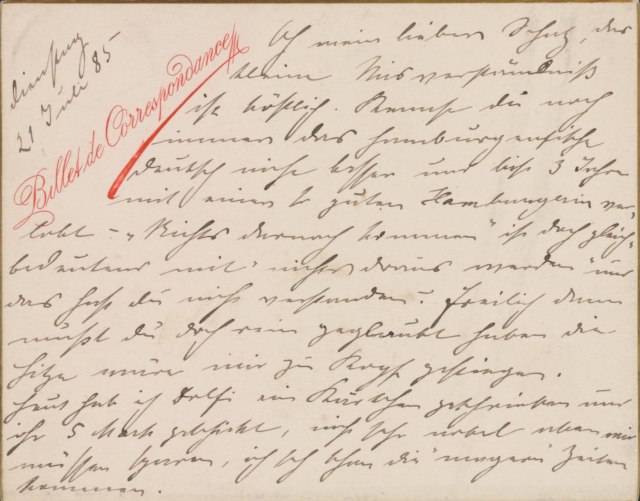 Dienstag
21 Juli 85
Billet de Correspondance
Ach mein lieber Schatz, das
kleine Misverständniß
ist köstlich. Kennst du noch
immer das hamburgensische
deutsch nicht besser und bist 3 Jahre
mit einer so guten Hamburgerin ver-
lobt – „Nichts darnach kommen" ist doch gleich-
bedeutend mit „nichts draus werden" und
das hast du nicht verstanden? Freilich dann
mußt du doch rein geglaubt haben die
Hitze wäre mir zu Kopf gestiegen.
Heut hab ich ein Kärtchen geschrieben und
ihr 5 Mark geschickt, nicht sehr nobel aber wir
müssen sparen, ich seh schon die mageren Zeiten
kommen.